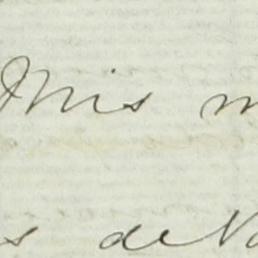 Mis m
s de V